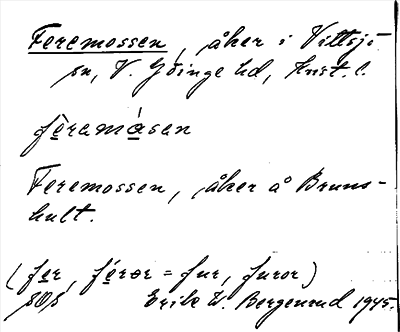 Feremossen, åker i Vittsjö
sn, V. Göinge hd, Krist. l.
fèremåsen
Feremossen, åker å Bruns-
hult.
(fer, féror = fur, furor)
Erik W. Bergenrud 1945.